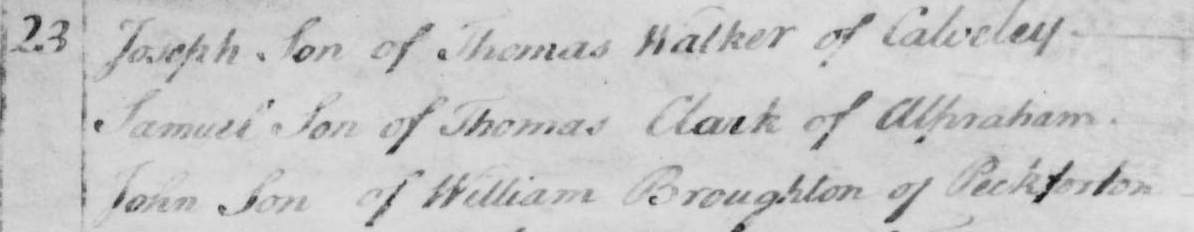 23 Joseph Son of Thomas Walker of Calveley
Samuel Son of Thomas Clark of Alpraham.
John Son of William Broughton of Peckforton